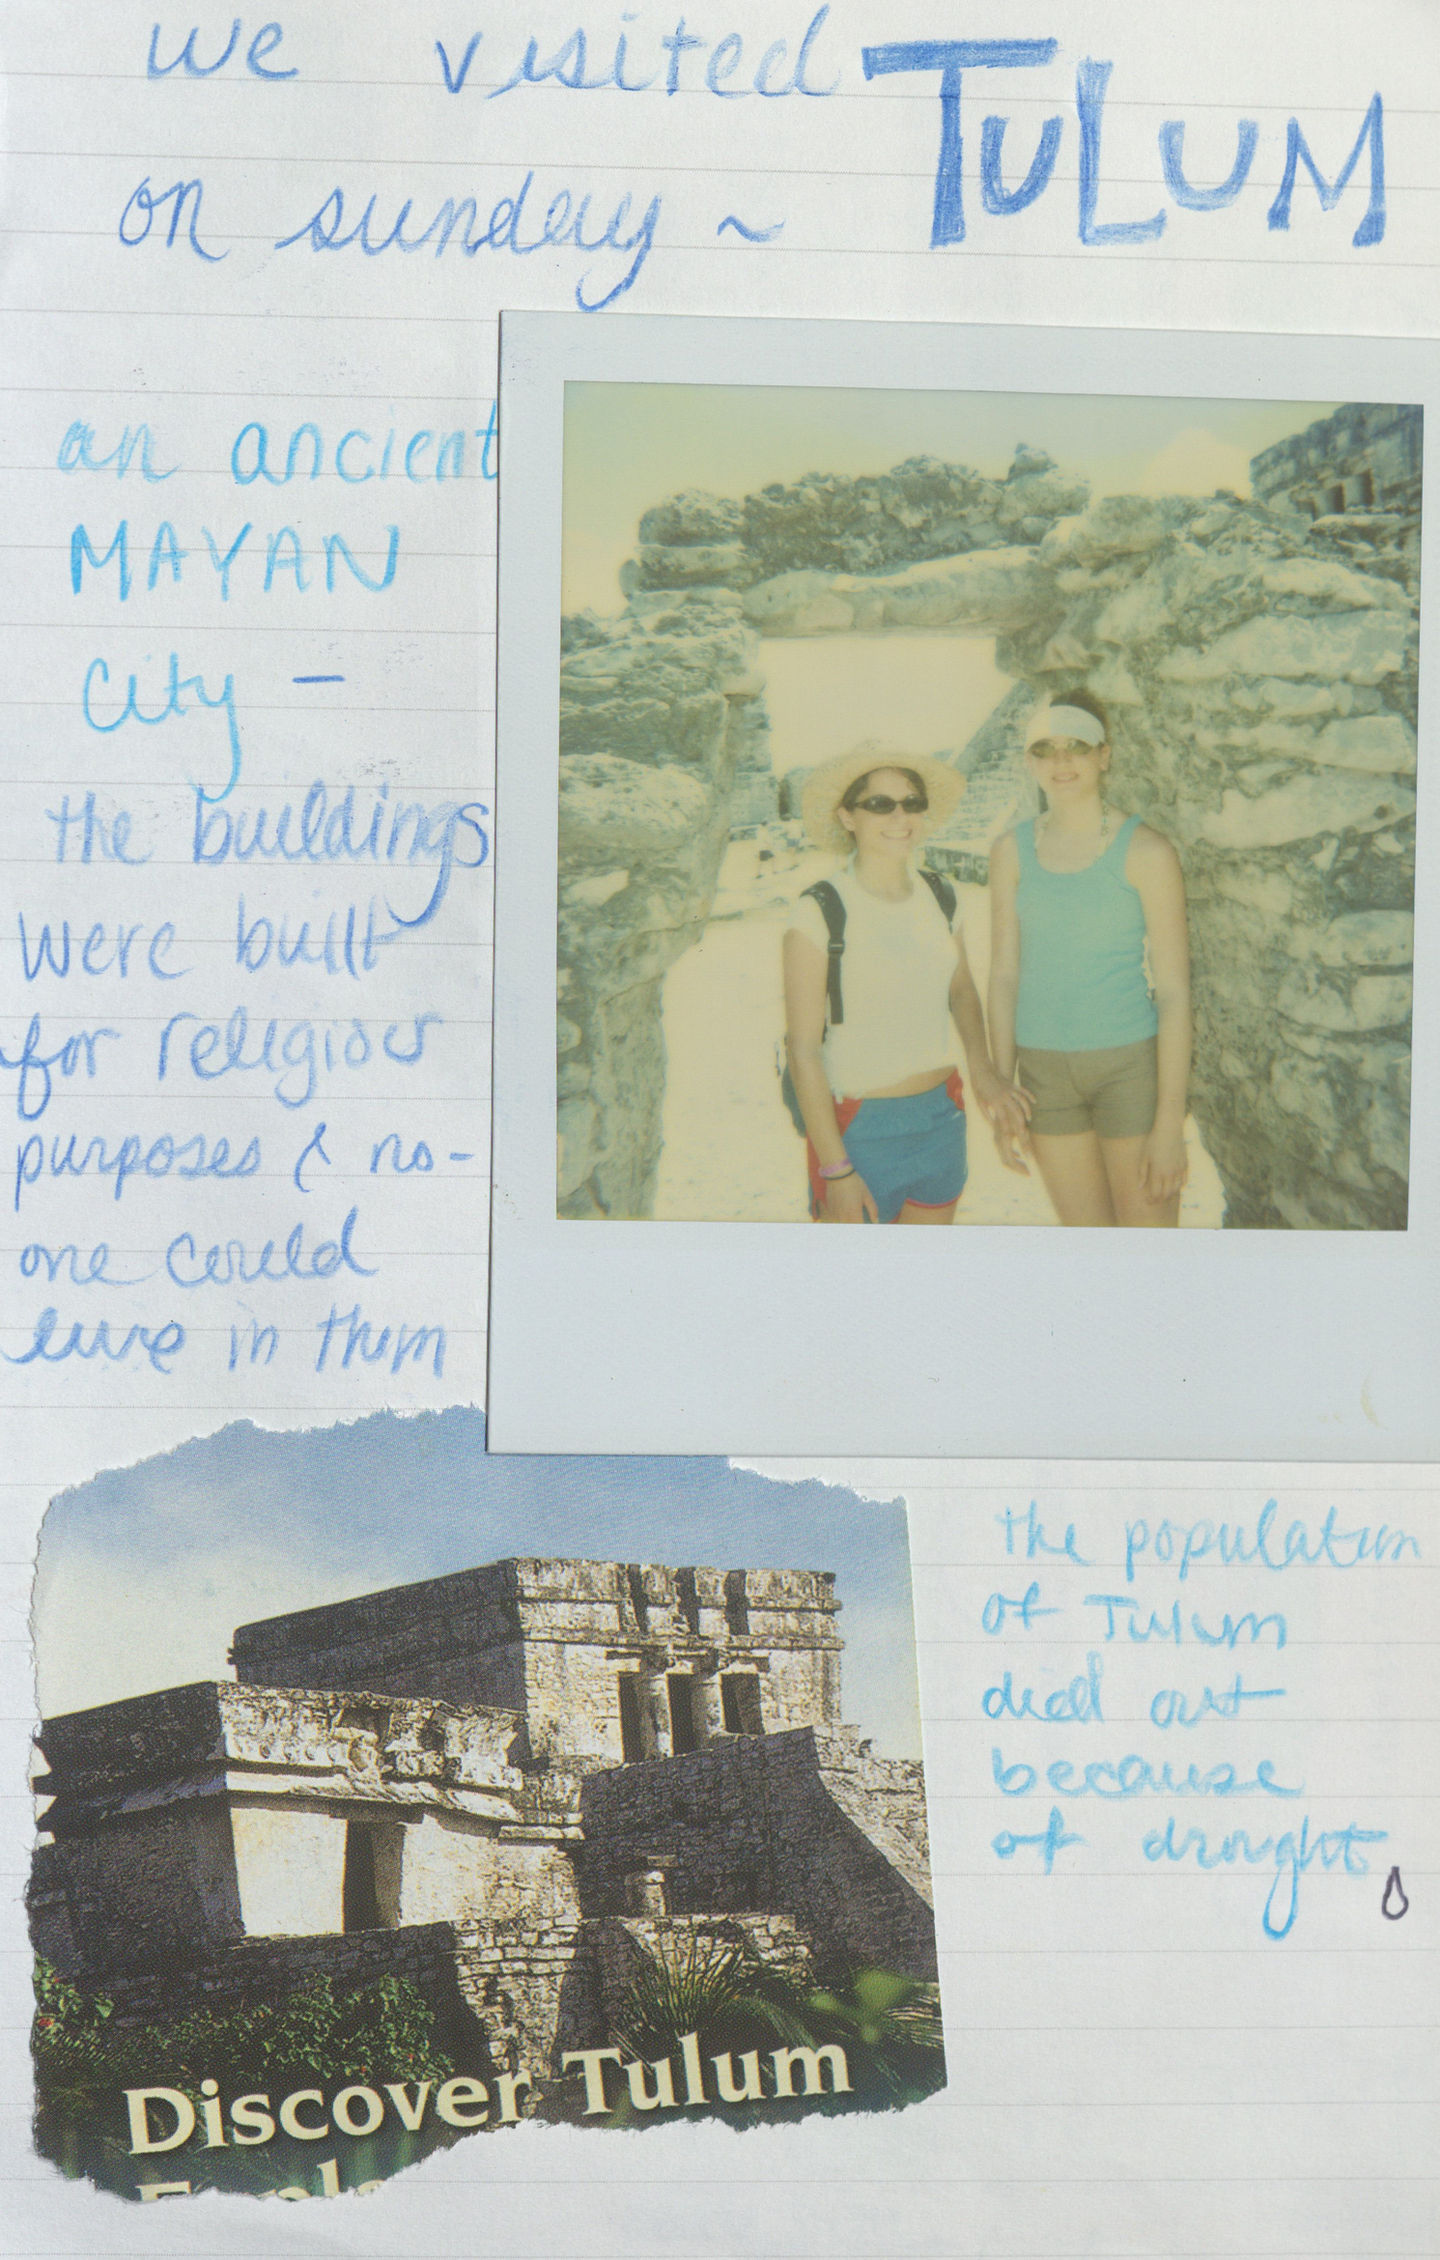 we visited TULUM
on sunday ~
an ancient
MAYAN
City -
the buildings
were built
for religious
purposes & no-
one could
live in them
the population
of Tulum
died out
because
of drought
Discover Tulum